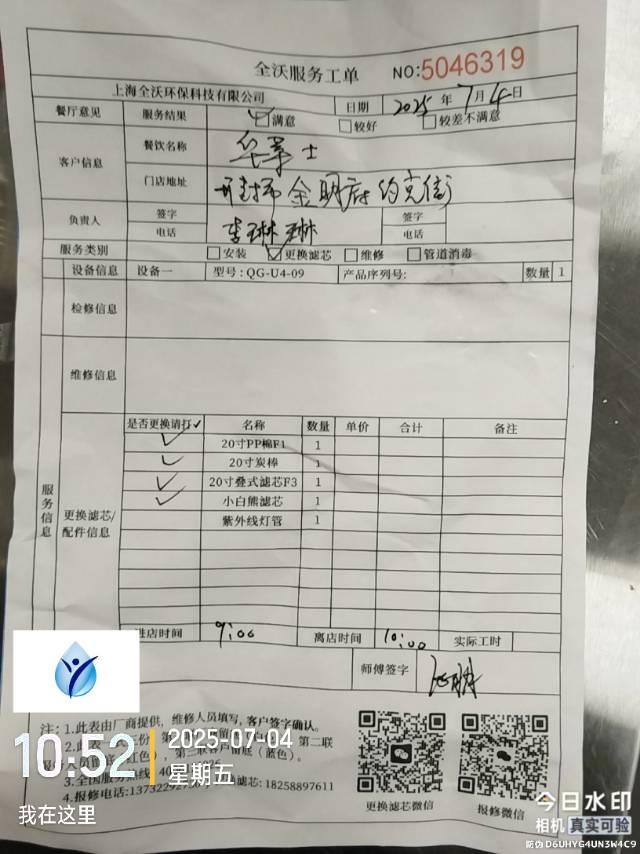 全沃服务工单 NO:5046319
上海全沃环保科技有限公司 日期 2025 年 7 月 4 日
餐厅意见 服务结果 ☑满意 □较好 □较差不满意
客户信息 餐饮名称 华莱士
门店地址 开封市金明府约克街
负责人 签字 李琳琳 签字
电话 电话
服务类别 □安装 ☑更换滤芯 □维修 □管道消毒
设备信息 设备一 型号:QG-U4-09 产品序列号: 数量 1
检修信息
维修信息
服务信息
更换滤芯/配件信息
是否更换请打✓ 名称 数量 单价 合计 备注
✓ 20寸PP棉F1 1
✓ 20寸炭棒 1
✓ 20寸叠式滤芯F3 1
✓ 小白熊滤芯 1
紫外线灯管 1
进店时间 9:00 离店时间 10:00 实际工时
师傅签字
注: 1.此表由厂商提供, 维修人员填写, 客户签字确认。
第二联
(蓝色)。
3.全国服务热线
滤芯: 18258897611
4.报修电话:
更换滤芯微信 报修微信
10:52 2025-07-04
星期五
我在这里
今日水印
相机 真实可验
防伪 D6UHYG4UN3W4C9